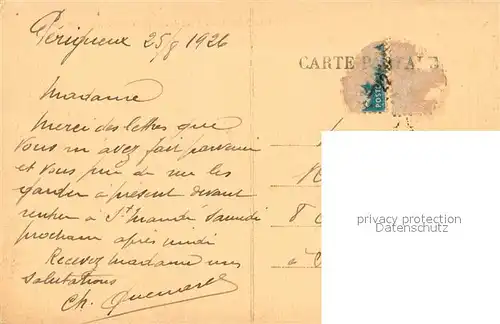 Périgueux 25/8 1926
CARTE POSTALE
POSTES
Madame
Merci des lettres que
vous m'avez fait parvenir
et vous prie de me les
garder à présent devant
rentrer à St Mandé Samedi
prochain après midi
Recevez Madame mes
salutations
Ch.
à
privacy protection
Datenschutz